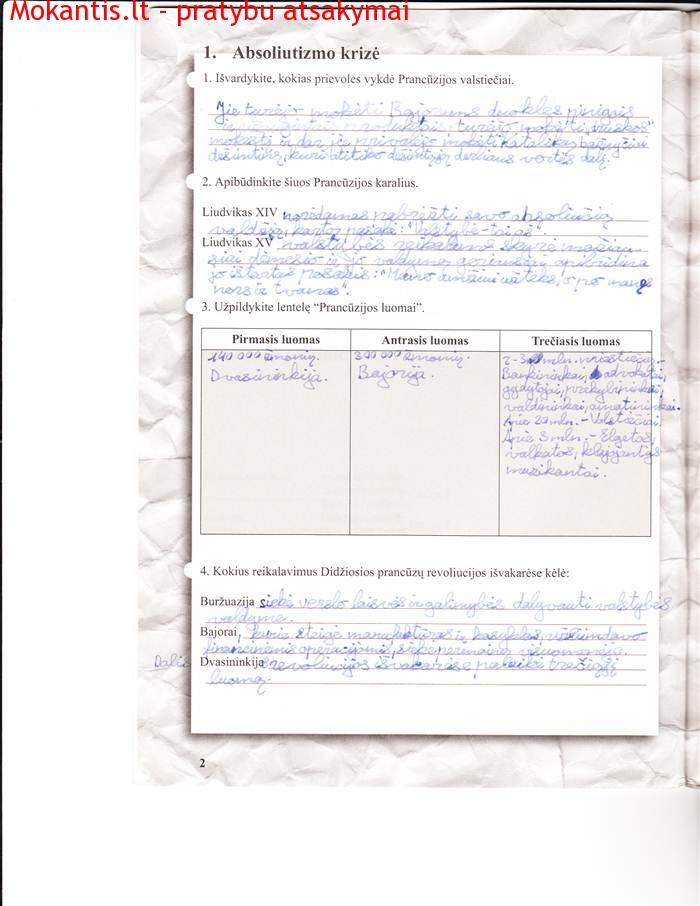 Mokantis.lt - pratybu atsakymai
1. Absoliutizmo krizė
1. Išvardykite, kokias prievoles vykdė Prancūzijos valstiečiai.
Jie turėjo mokėti Bajorams duokles pinigais
ir produktais, turėjo mokėti „druskos"
mokestį ir dar jie privalėjo mokėti katalikų bažnyčiai
dešimtinę, kuri atitiko dešimtąją derliaus vertės dalį.
2. Apibūdinkite šiuos Prancūzijos karalius.
Liudvikas XIV norėdamas pabrėžti savo absoliučią
valdžią, kartą pasakė: "Valstybė-tai aš".
Liudvikas XV valstybės reikalams skyrė mažiau-
siai dėmesio ir jo valdymą geriausiai apibūdina
jo ištartas posakis: "Mano amžiui užteks, o po manęs
nors ir tvanas".
3. Užpildykite lentelę “Prancūzijos luomai”.
Pirmasis luomas Antrasis luomas Trečiasis luomas
140 000 žmonių. 300 000 žmonių. 2-3 mln.
Dvasininkija. Bajorija. Bankininkai, advokatai,
gydytojai, prekybininkai,
valdininkai, amatininkai.
Apie 20 mln. - Valstiečiai.
Apie 3 mln. - Elgetos,
valkatos, klajojantys
muzikantai.
4. Kokius reikalavimus Didžiosios prancūzų revoliucijos išvakarėse kėlė:
Buržuazija siekė verslo laisvės ir galimybės dalyvauti valstybės
valdyme.
Bajorai, kurie steigė manufaktūras ir kasyklas, užsiimdavo
financinėmis operacijomis, siekė permainų visuomenėje.
Dalis Dvasininkija revoliucijos išvakarėse palaikė trečiąjį
luomą.
2